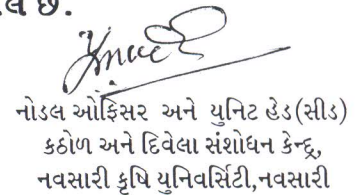 નોડલ ઓફિસર અને યુનિટ હેડ(સીડ)
કઠોળ અને દિવેલા સંશોધન કેન્દ્ર,
નવસારી કૃષિ યુનિવર્સિટી,નવસારી